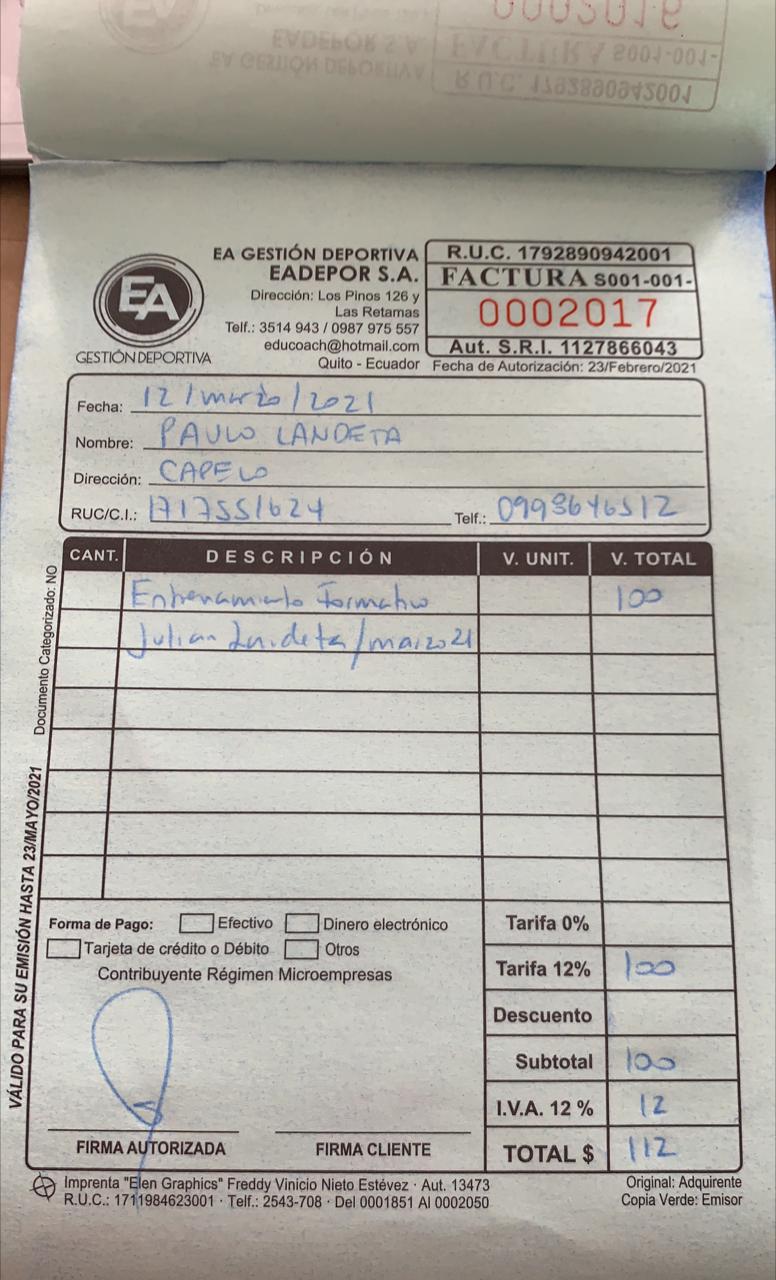 0002016
FACTURA S001-001-
EADEPOR S.A.
EA GESTIÓN DEPORTIVA
R.U.C. 1792890942001
EA
GESTIÓN DEPORTIVA
EA GESTIÓN DEPORTIVA
EADEPOR S.A.
Dirección: Los Pinos 126 y
Las Retamas
Telf.: 3514 943 / 0987 975 557
educoach@hotmail.com
Quito - Ecuador
R.U.C. 1792890942001
FACTURA S001-001-
0002017
Aut. S.R.I. 1127866043
Fecha de Autorización: 23/Febrero/2021
Fecha: 12/marzo/2021
Nombre: PAULO LANDETA
Dirección: CAPELO
RUC/C.I.: 1717551624 Telf.: 0993646512
CANT. DESCRIPCIÓN V. UNIT. V. TOTAL
Entrenamiento Formativo 100
Julian Landeta/marzo21
Documento Categorizado: NO
VÁLIDO PARA SU EMISIÓN HASTA 23/MAYO/2021
Forma de Pago: Efectivo Dinero electrónico
Tarjeta de crédito o Débito Otros
Contribuyente Régimen Microempresas
Tarifa 0%
Tarifa 12% 100
Descuento
Subtotal 100
I.V.A. 12 % 12
TOTAL $ 112
FIRMA AUTORIZADA FIRMA CLIENTE
Imprenta "Elen Graphics" Freddy Vinicio Nieto Estévez · Aut. 13473
R.U.C.: 1711984623001 · Telf.: 2543-708 · Del 0001851 Al 0002050
Original: Adquirente
Copia Verde: Emisor